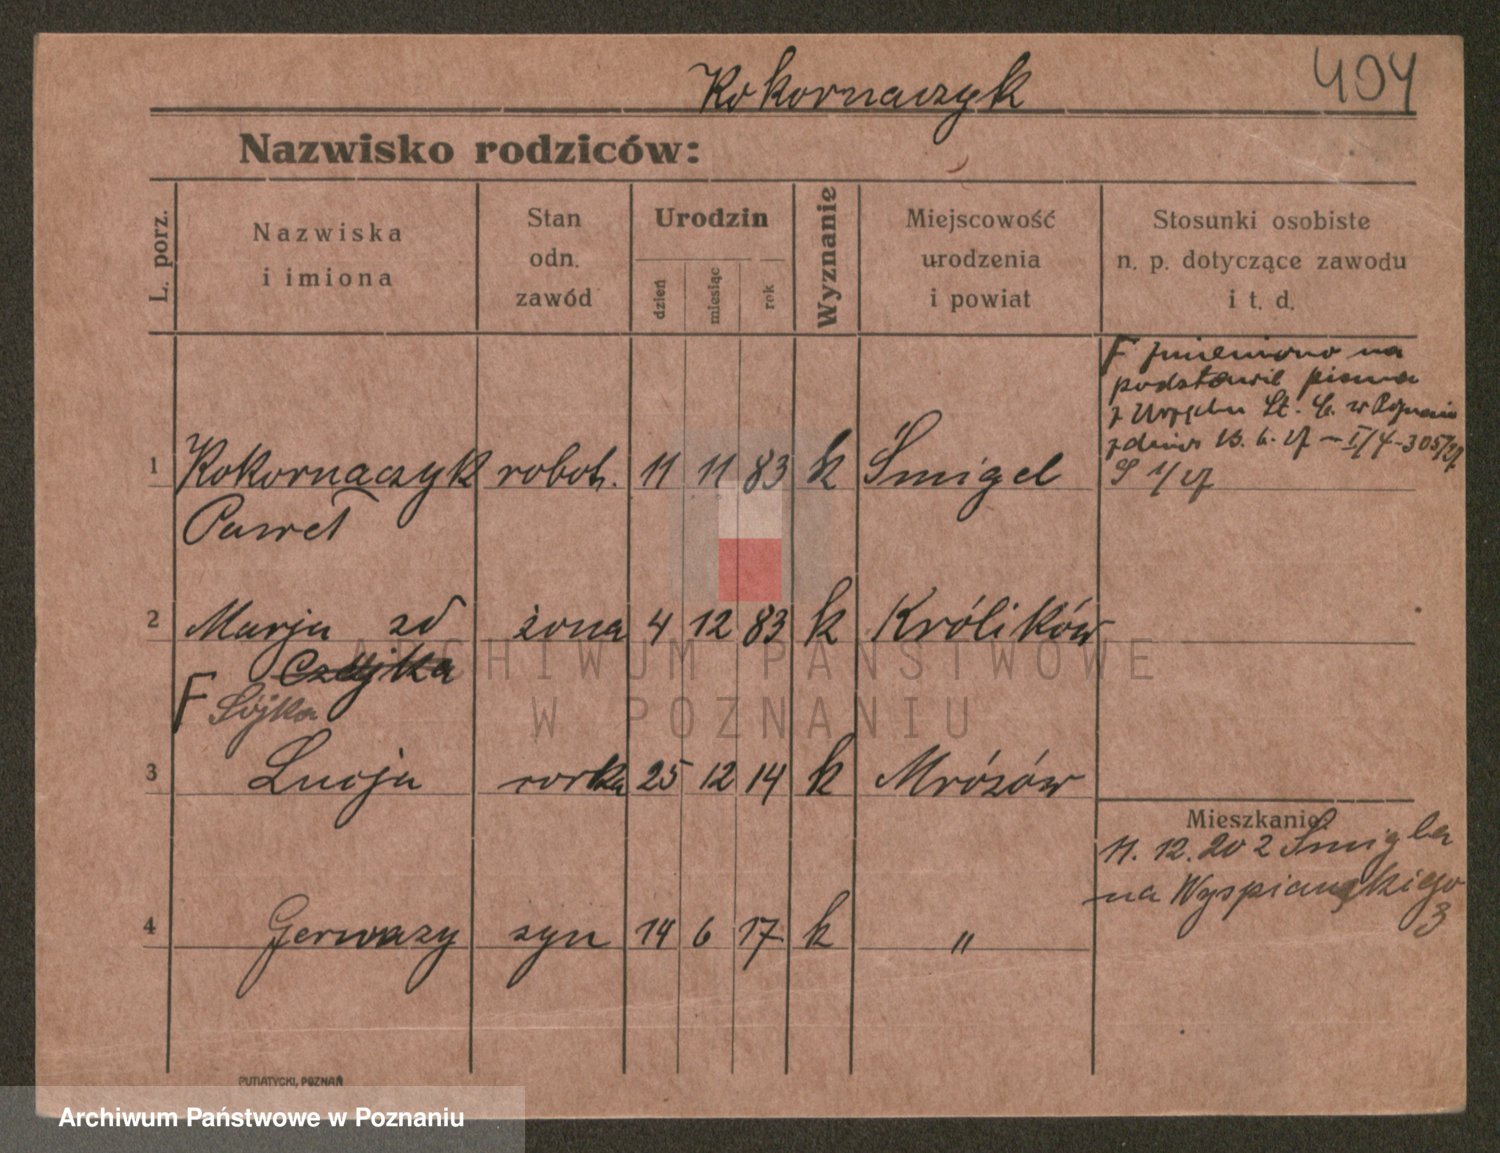 Kokornaczyk
494
Nazwisko rodziców:
L. porz.
Nazwiska
i imiona
Stan
odn.
zawód
Urodzin
dzień
miesiąc
rok
Wyznanie
Miejscowość
urodzenia
i powiat
Stosunki osobiste
n. p. dotyczące zawodu
i t. d.
F zmieniono na
podstawie pisma
z Urzędu St. C. w Poznaniu
z dnia 13. 6. 27 – I/4-305/27
1 Kokornaczyk robot. 11 11 83 k Śmigel
Paweł
2 Marja zd żona 4 12 83 k Królików
F Sójka
3 Lucja corka 25 12 14 k Mrózów
Mieszkanie:
11. 12. 20 z Śmigla
na Wyspiańskiego
3
4 Gerwazy syn 14 6 17 k "
ARCHIWUM PAŃSTWOWE
W POZNANIU
PUTIATYCKI, POZNAŃ
Archiwum Państwowe w Poznaniu